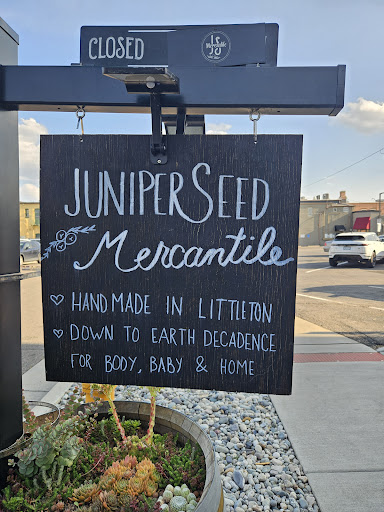 CLOSED
JS
Mercantile
JUNIPERSEED
Mercantile
♡ HANDMADE IN LITTLETON
♡ DOWN TO EARTH DECADENCE
FOR BODY, BABY & HOME